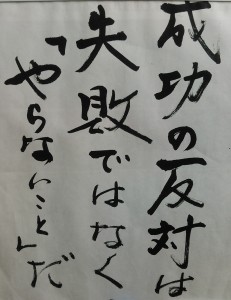 成功の反対は
失敗ではなく
「やらないこと」だ